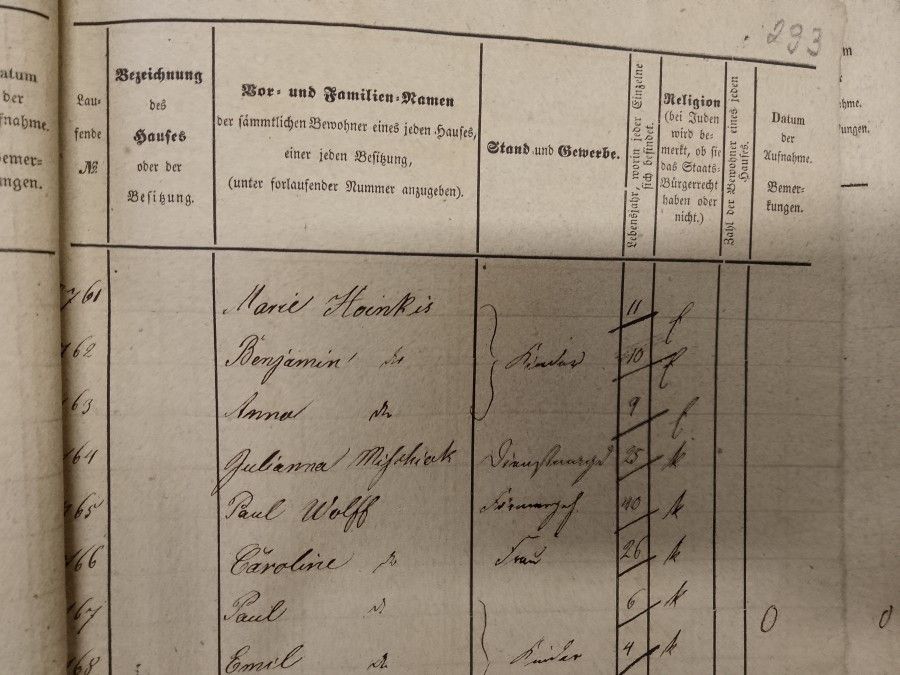 293
atum
der
fnahme.
emer-
ngen.
Lau-
fende
№
Bezeichnung
des
Hauses
oder der
Besitzung.
Vor- und Familien-Namen
der sämmtlichen Bewohner eines jeden Hauses,
einer jeden Besitzung,
(unter forlaufender Nummer anzugeben).
Stand und Gewerbe.
Lebensjahr, worin jeder Einzelne
sich befindet.
Religion
(bei Juden
wird be-
merkt, ob sie
das Staats-
Bürgerrecht
haben oder
nicht.)
Zahl der Bewohner eines jeden
Hauses.
Datum
der
Aufnahme.
Bemer-
kungen.
m
hme.
ungen.
761 Marie Hoinkis 11 f
762 Benjamin do Kinder 10 f
63 Anna do 9 f
164 Julianna Mischiok Dienstmagd 25 k
165 Paul Wolff Förmergeh. 40 k
166 Caroline do Frau 26 k
167 Paul do 6 k 0 0
168 Emil do Kinder 4 k